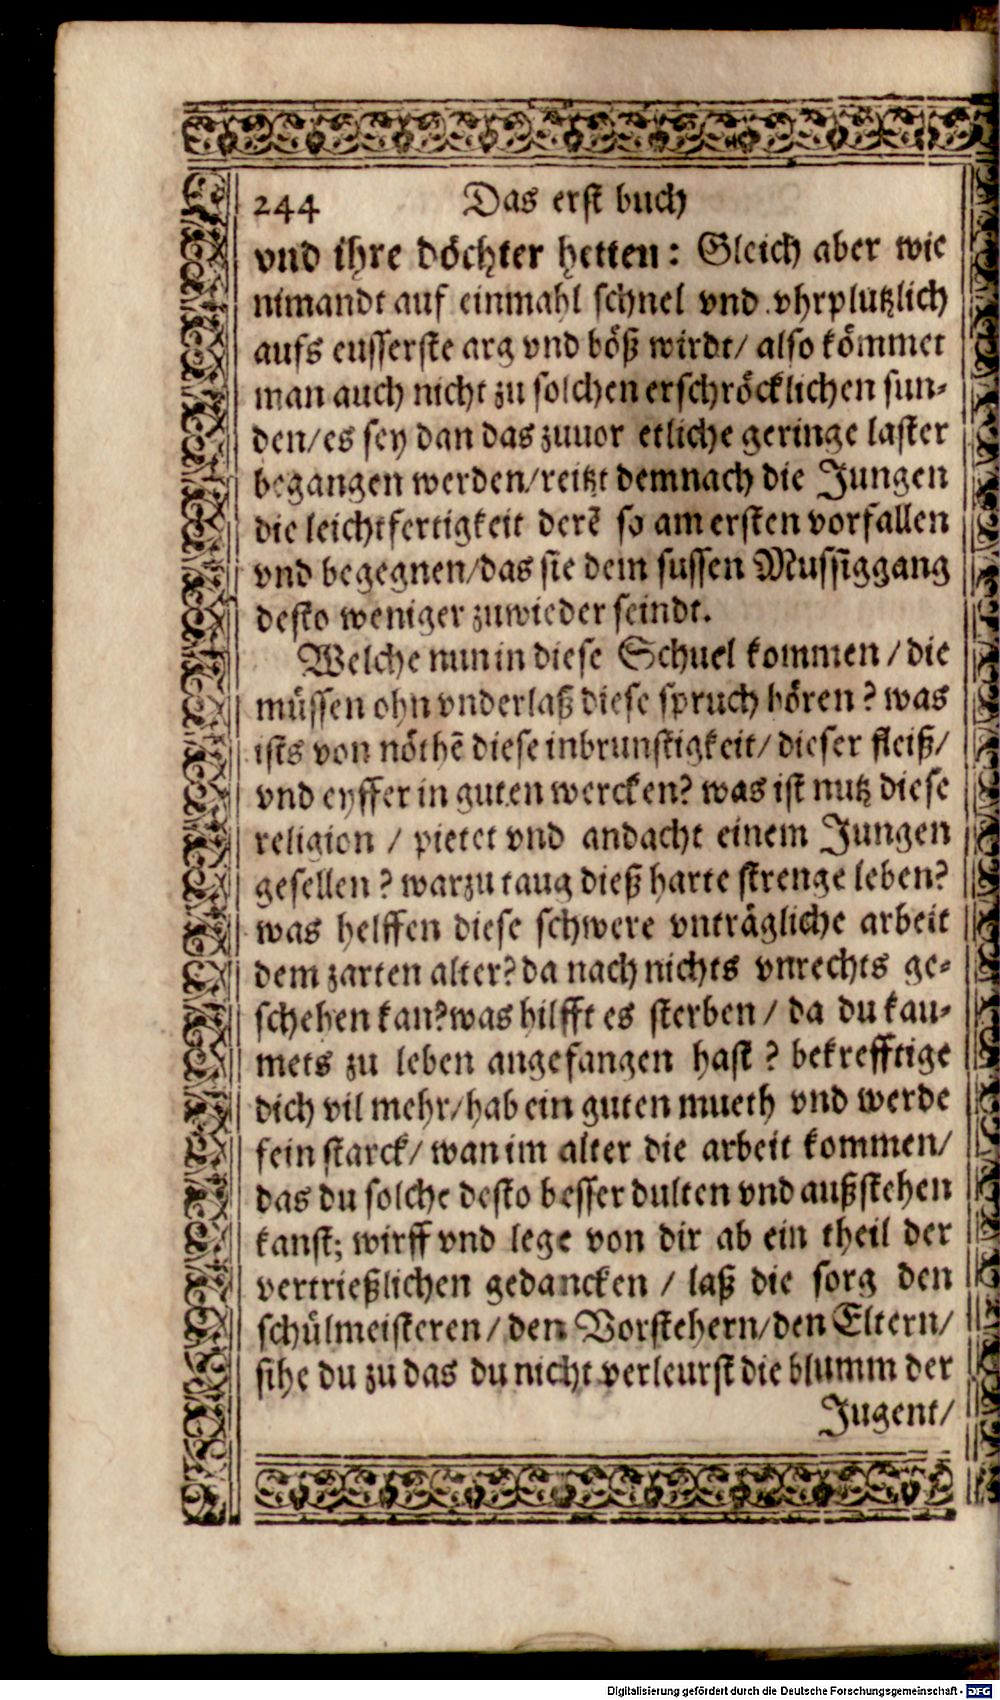 244 Das erst buch
vnd ihre döchter hetten: Gleich aber wie
nimandt auf einmahl schnel vnd vhrplutzlich
aufs eusserste arg vnd böß wirdt/ also kömmet
man auch nicht zu solchen erschröcklichen sun-
den/ es sey dan das zuuor etliche geringe laster
begangen werden/ reitzt demnach die Jungen
die leichtfertigkeit derē so am ersten vorfallen
vnd begegnen/ das sie dem sussen Mussiggang
desto weniger zuwieder seindt.
Welche nun in diese Schuel kommen / die
müssen ohn vnderlaß diese spruch hören? was
ists von nöthē diese inbrunstigkeit/ dieser fleiß/
vnd eyffer in guten wercken? was ist nutz diese
religion / pietet vnd andacht einem Jungen
gesellen? warzu taug dieß harte strenge leben?
was helffen diese schwere vnträgliche arbeit
dem zarten alter? da nach nichts vnrechts ge-
schehen kan? was hilfft es sterben / da du kau-
mets zu leben angefangen hast? bekrefftige
dich vil mehr/ hab ein guten mueth vnd werde
fein starck/ wan im alter die arbeit kommen/
das du solche desto besser dulten vnd außstehen
kanst; wirff vnd lege von dir ab ein theil der
vertrießlichen gedancken / laß die sorg den
schülmeisteren/ den Vorstehern/ den Eltern/
sihe du zu das du nicht verleurst die blumm der
Jugent/
Digitalisierung gefördert durch die Deutsche Forschungsgemeinschaft - DFG